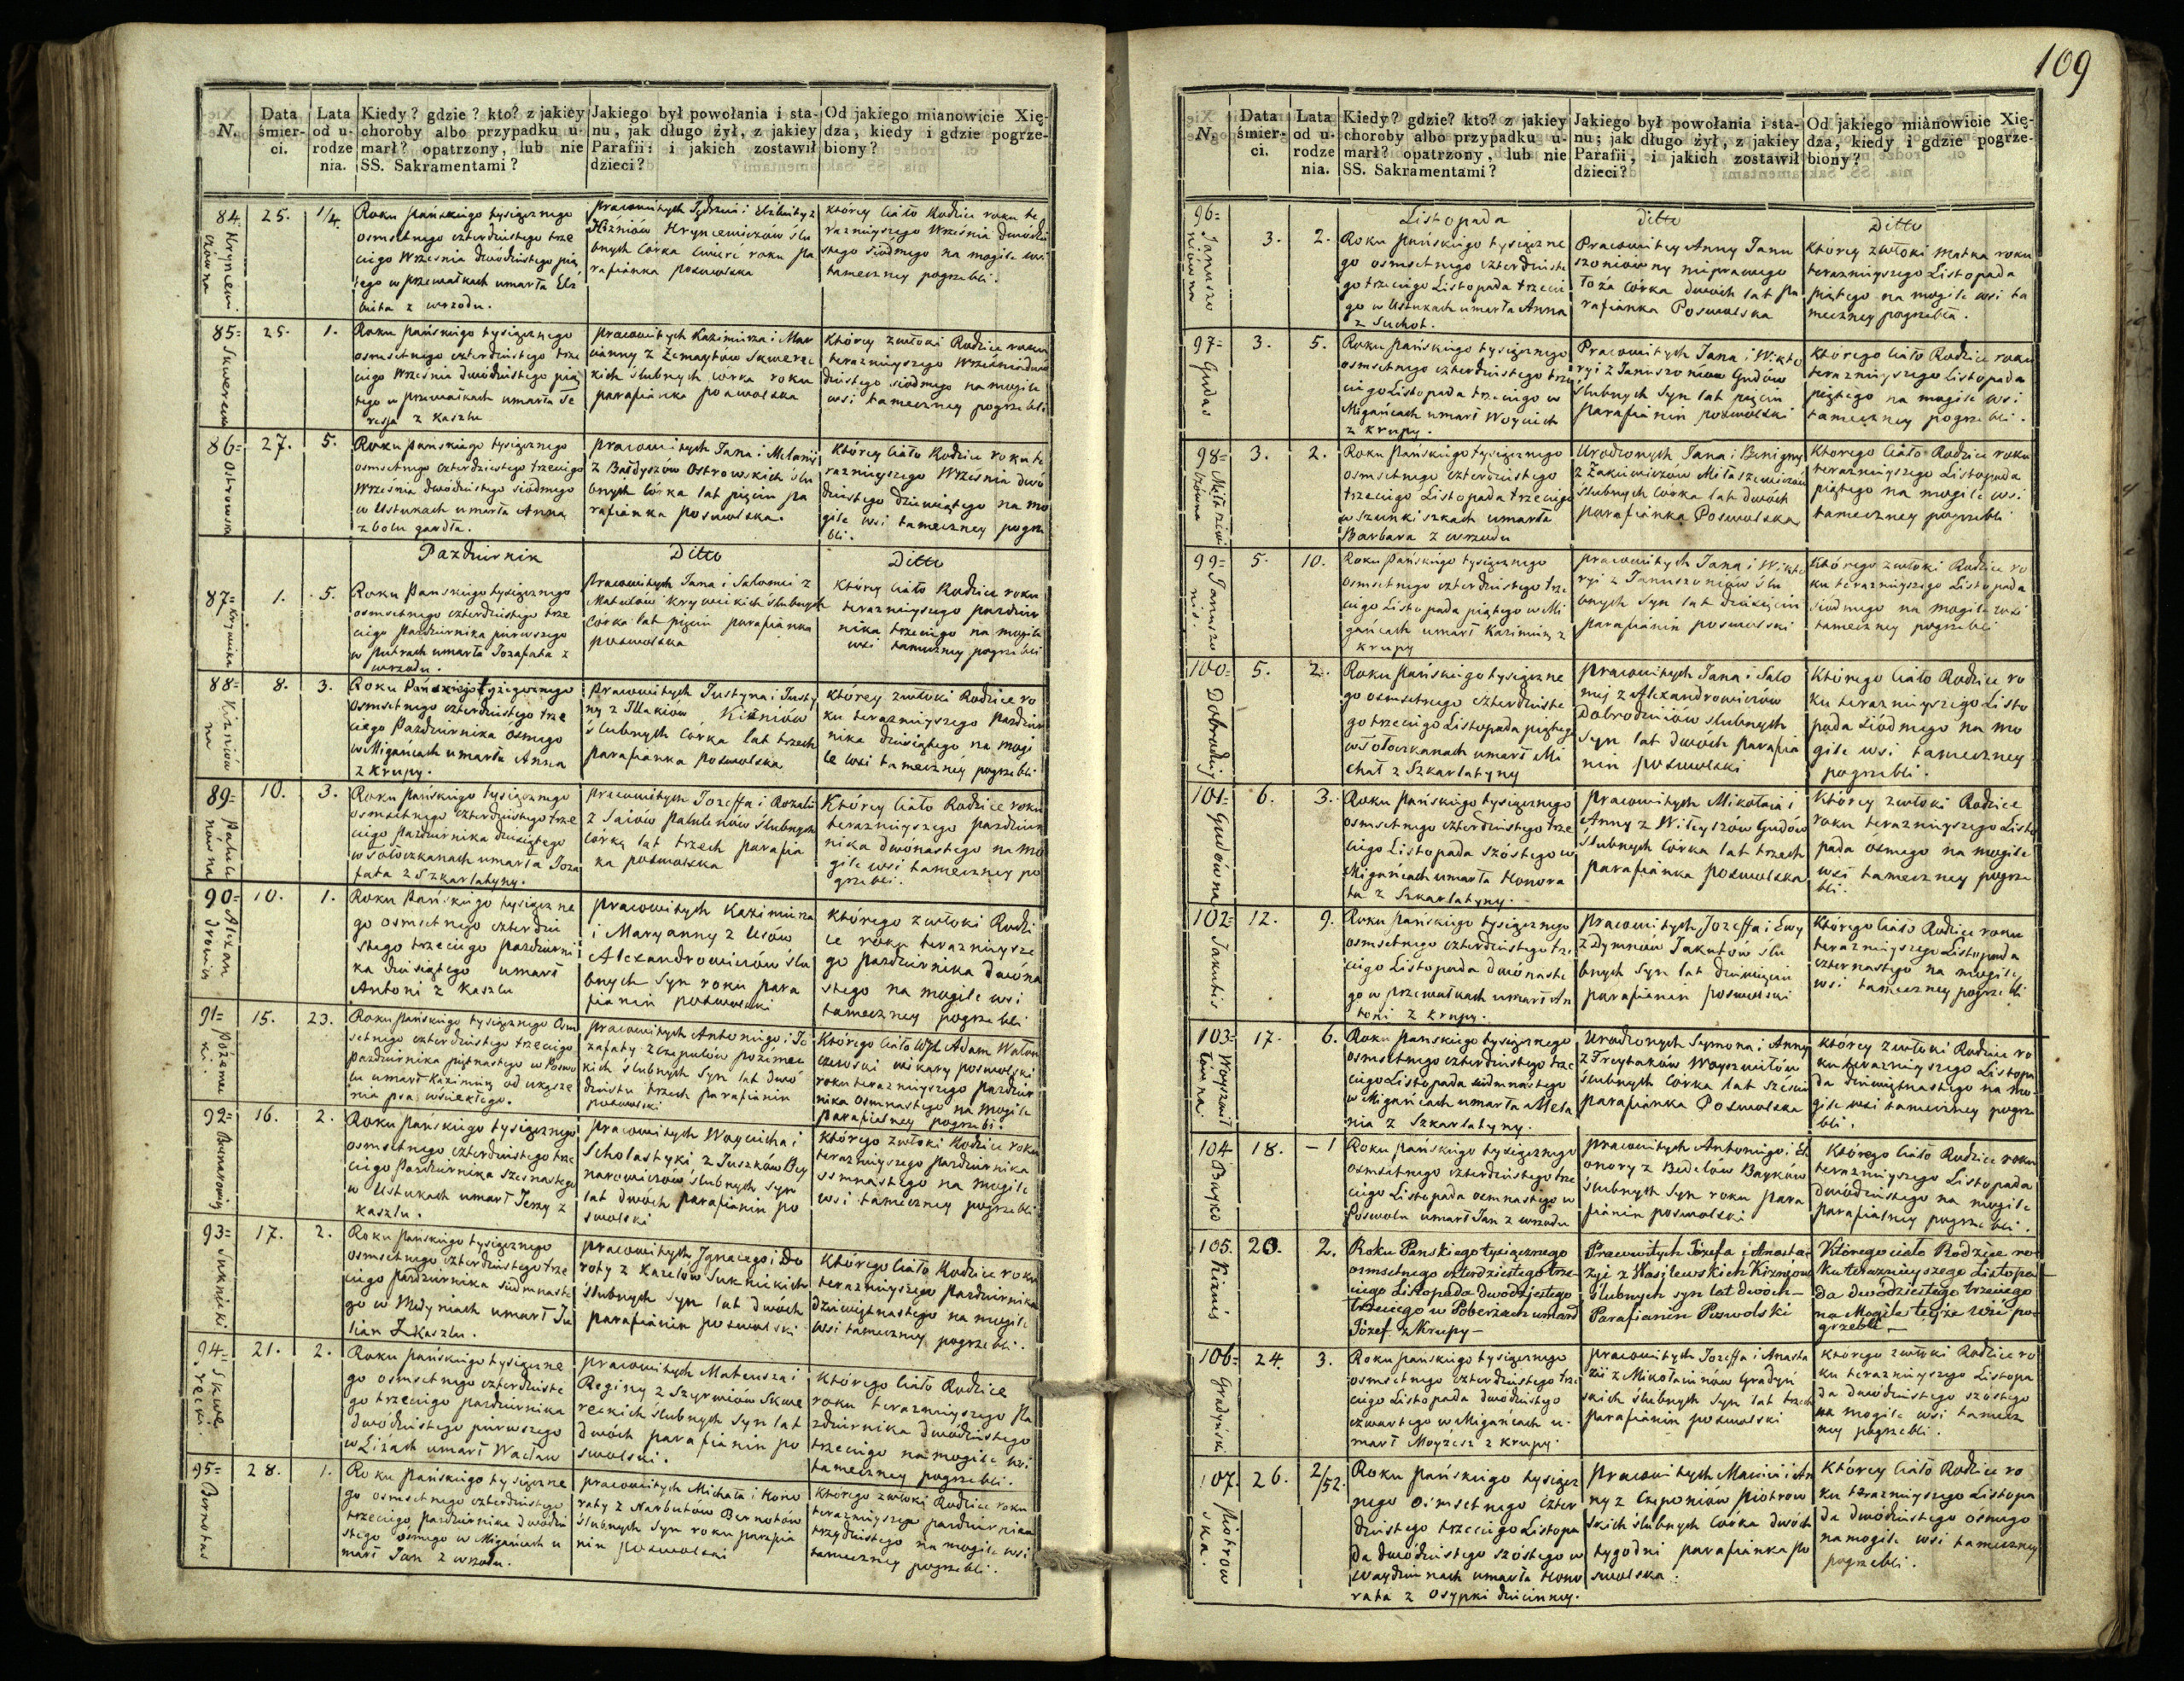 109
N.
Data śmier-ci.
Lata od u-rodze nia.
Kiedy? gdzie? kto? z jakiey
choroby albo przypadku u-
marł? opatrzony, lub nie
SS. Sakramentami?
Jakiego był powołania i sta-
nu, jak długo żył, z jakiey
Parafii: i jakich zostawił
dzieci?
Od jakiego mianowicie Xię-
dza, kiedy i gdzie pogrze-
biony?
84 Hryncewi czówna
25.
1/4.
Roku Pańskiego tysiącznego
osmsetnego czterdziestego trze
ciego Września dwódziestego pią
tego w Przewałkach umarła Elż
bieta z wrzodu.
pracowitych Jędrzeia i Elżbiety z
Kiżniów Hryncewiczów ślu
bnych Córka ćwierć roku pa
rafianka poswolska
którey Ciało Rodzice roku te
raznieyszego Września dwódzie
stego siódmego na mogile wsi
tameczney pogrzebli.
85=
25.
1.
Roku Pańskiego tysiącznego
osmsetnego czterdziestego trze
ciego Września dwódziestego pią
tego w Przewałkach umarła Te
ressa z kaszlu
pracowitych Kazimierza i Mar
cianny z Żemaytów Skwerec
kich ślubnych córka roku
parafianka poswolska
którey zwłoki Rodzice roku
teraznieyszego Września dwó
dziestego siódmego na mogile
wsi tameczney pogrzebli
86= Ostrowska
27.
5.
Roku Pańskiego tysiącznego
osmsetnego czterdziestego trzeciego
Września dwódziestego siódmego
w Ustukach umarła Anna
z bolu gardła.
pracowitych Jana i Melanij
z Bałdyszów Ostrowskich ślu
bnych Córka lat pięciu pa
rafianka poswolska.
którey Ciało Rodzice roku te
raznieyszego Września dwó
dziestego dziewiątego na mo
gile wsi tameczney pogrze
bli.
Pazdziernik
Ditto
Ditto
87= Krywicka
1.
5.
Roku Pańskiego tysiącznego
osmsetnego czterdziestego trze
ciego Pazdziernika pierwszego
w Putrach umarła Jozafata z
wrzodu.
Pracowitych Jana i Salomei z
Matulów Krywickich ślubnych
Córka lat pięciu parafianka
poswolska
którey Ciało Rodzice roku
teraznieyszego pazdzier
nika trzeciego na mogile
wsi tameczney pogrzebli
88= Kiżniów na
8.
3.
Roku Pańskiego tysiącznego
osmsetnego czterdziestego trze
ciego Pazdziernika ósmego
w Migańcach umarła Anna
z krupy.
pracowitych Justyna i Justy
ny z Illakiów Kiżniów
ślubnych Córka lat trzech
parafianka poswolska
którey zwłoki Rodzice ro
ku teraznieyszego pazdzier
nika dziesiątego na mogi
le wsi tameczney pogrzebli
89= Pabule nówna
10.
3.
Roku Pańskiego tysiącznego
osmsetnego czterdziestego trze
ciego pazdziernika dziesiątego
w Tołoczkanach umarła Joza
fata z Szkarlatyny.
pracowitych Jozeffa i Rozalii
z Saiów Pabulenów ślubnych
córka lat trzech parafia
nka poswolska
Którey Ciało Rodzice roku
teraznieyszego pazdzier
nika dwonastego na mo
gile wsi tameczney po
grzebli.
90= Alexan drowicz
10.
1.
Roku Pańskiego tysiączne
go osmsetnego czterdzie
stego trzeciego pazdzierni
ka dziesiątego umarł
Antoni z kaszlu
pracowitych Kazimierza
i Maryanny z Usów
Alexandrowiczów ślu
bnych Syn roku para
fianin poswolski
którego zwłoki Rodzi
ce roku teraznieysze
go pazdziernika dwóna
stego na mogile wsi
tameczney pogrzebli
91= Pożemec ki.
15.
23.
Roku Pańskiego tysiącznego osm
setnego czterdziestego trzeciego
Pazdziernika piętnastego w Poswo
lu umarł Kazimierz od ukąsze
nia psa wściekłego.
pracowitych Antoniego i Jo
zafaty z Czapułów Pożemec
kich ślubnych Syn lat dwó
dziestu trzech parafianin
poswolski
Którego Ciało WJX Adam Walon
czewski wikary poswolski
roku teraznieyszego pazdzier
nika osmnastego na mogile
parafialney pogrzebł.
92=
16.
2.
Roku Pańskiego tysiącznego
osmsetnego czterdziestego trze
ciego Pazdziernika szesnastego
w Ustukach umarł Jerzy z
kaszlu.
pracowitych Woyciecha i
Scholastyki z Juszków Bey
narowiczów ślubnych Syn
lat dwóch parafianin po
swolski
którego zwłoki Rodzice roku
teraznieyszego pazdziernika
osmnastego na mogile
wsi tameczney pogrzebli
93= Suknicki
17.
2.
Roku Pańskiego tysiącznego
osmsetnego czterdziestego trze
ciego pazdziernika siedmnaste
go w Medyniach umarł Ju
lian z kaszlu.
pracowitych Jgnacego i Do
roty z Karelów Suknickich
ślubnych Syn lat dwóch
parafianin poswolski
Którego Ciało Rodzice roku
teraznieyszego pazdziernika
dziewiętnastego na mogile
wsi tameczney pogrzebli.
94= Skwe recki.
21.
2.
Roku Pańskiego tysiączne
go osmsetnego czterdzieste
go trzeciego pazdziernika
dwódziestego pierwszego
w Liżach umarł Wacław
pracowitych Mateusza i
Reginy z Szyrwiów Skwe
reckich ślubnych Syn lat
dwóch parafianin po
swolski.
Którego Ciało Rodzice
roku teraznieyszego Pa
zdziernika dwódziestego
trzeciego na mogile wsi
tameczney pogrzebli.
95= Bernotas
28.
1.
Roku Pańskiego tysiączne
go osmsetnego czterdziestego
trzeciego pazdziernika dwódzie
stego osmego w Migańcach u
marł Jan z wrzodu.
pracowitych Michała i Hono
raty z Narbutów Bernotów
ślubnych Syn roku parafia
nin poswolski
którego zwłoki Rodzice roku
teraznieyszego pazdziernika
trzydziestego na mogile wsi
tameczney pogrzebli.
N.
Data śmier-ci.
Lata od u-rodze nia.
Kiedy? gdzie? kto? z jakiey
choroby albo przypadku u-
marł? opatrzony, lub nie
SS. Sakramentami?
Jakiego był powołania i sta-
nu; jak długo żył, z jakiey
Parafii, i jakich zostawił
dzieci?
Od jakiego mianowicie Xię-
dza, kiedy i gdzie pogrze-
biony?
Listopada
ditto
Ditto
96= Januszo niówna
3.
2.
Roku Pańskiego tysiączne
go osmsetnego czterdzieste
go trzeciego Listopada trzecie
go w Ustukach umarła Anna
z Suchot.
Pracowitey Anny Janu
szoniówny nieprawego
łoża Córka dwóch lat pa
rafianka Poswolska
którey zwłoki Matka roku
teraznieyszego Listopada
piątego na mogile wsi ta
meczney pogrzebła.
97= Gudas
3.
5.
Roku Pańskiego tysiącznego
osmsetnego czterdziestego trze
ciego Listopada trzeciego w
Migańcach umarł Woyciech
z krupy.
Pracowitych Jana i Wikto
ryi z Januszoniów Gudów
ślubnych Syn lat pięciu
parafianin poswolski
którego Ciało Rodzice roku
teraznieyszego listopada
piątego na mogile wsi
tameczney pogrzebli.
98=
3.
2.
Roku Pańskiego tysiącznego
osmsetnego czterdziestego
trzeciego Listopada trzeciego
w Szunkiszkach umarła
Barbara z wrzodu
Urodzonych Jana i Benigny
z Żakiewiczów Miłaszewiczów
ślubnych Corka lat dwóch
parafianka Poswolska
Którego Ciało Rodzice roku
teraznieyszego Listopada
piątego na mogile wsi
tameczney pogrzebli
99= Januszo nis.
5.
10.
Roku Pańskiego tysiącznego
osmsetnego czterdziestego trze
ciego Listopada piątego w Mi
gańcach umarł Kazimierz z
krupy
pracowitych Jana i Wikto
ryi z Januszoniów ślu
bnych Syn lat dziesięciu
parafianin poswolski
Którego zwłoki Rodzice ro
ku teraznieyszego Listopada
siódmego na mogile wsi
tameczney pogrzebli
100= Dobrodziey
5.
2.
Roku Pańskiego tysiączne
go osmsetnego czterdzieste
go trzeciego Listopada piątego
w Tołoczkanach umarł Mi
chał z Szkarlatyny
pracowitych Jana i Salo
mei z Alexandrowiczów
Dobrodziiów ślubnych
Syn lat dwóch parafia
nin poswolski
Którego Ciało Rodzice ro
ku teraznieyszego Listo
pada siódmego na mo
gile wsi tameczney
pogrzebli.
101= Gudówna
6.
3.
Roku Pańskiego tysiącznego
osmsetnego czterdziestego trze
ciego Listopada szóstego w
Migańcach umarła Honora
ta z Szkarlatyny.
pracowitych Mikołaia i
Anny z Witeyszów Gudów
ślubnych Córka lat trzech
parafianka poswolska
Którey zwłoki Rodzice
roku teraznieyszego Listo
pada osmego na mogile
wsi tameczney pogrze
bli.
102= Jakutis
12.
9.
Roku Pańskiego tysiącznego
osmsetnego czterdziestego trze
ciego Listopada dwónaste
go w Przewałkach umarł An
toni z krupy.
pracowitych Jozeffa i Ewy
z Dymnów Jakutów ślu
bnych Syn lat dziewięciu
parafianin poswolski
Którego Ciało Rodzice roku
teraznieyszego Listopada
czternastego na mogile
wsi tameczney pogrzebli
103= Woyszwił łówna.
17.
6.
Roku Pańskiego tysiącznego
osmsetnego czterdziestego trze
ciego Listopada siedmnastego
w Migańcach umarła Mela
nia z Szkarlatyny.
Urodzonych Symona i Anny
z Freytaków Woyszwiłów
ślubnych Corka lat sześciu
parafianka Poswolska
którey zwłoki Rodzice ro
ku teraznieyszego Listopa
da dziewiętnastego na mo-
gile wsi tameczney pogrze
bli.
104 Bayko
18.
- 1
Roku Pańskiego tysiącznego
osmsetnego czterdziestego trze
ciego Listopada osmnastego w
Poswolu umarł Jan z wrzodu
pracowitych Antoniego i El
onory z Bedelów Bayków
ślubnych Syn roku para
fianin poswolski
Którego Ciało Rodzice roku
teraznieyszego Listopada
dwódziestego na mogile
parafialney pogrzebli.
105. Kiźnis
20.
2.
Roku Pańskiego tysiącznego
osmsetnego czterdziestego trze-
ciego Listopada dwódziestego
trzeciego w Poberzach umarł
Józef z Krupy-
Pracowitych Józefa i Anasta-
zyi z Wasilewskich Kiźniów
ślubnych syn lat dwóch-
Parafianin Poswolski
Którego ciało Rodzice ro-
ku teraznieyszego Listopa-
da dwódziestego trzeciego
na Mogile teyże wsi po-
grzebli-
106= Gradyński
24.
3.
Roku Pańskiego tysiącznego
osmsetnego czterdziestego trze
ciego Listopada dwódziestego
czwartego w Migańcach u-
marł Moyżesz z krupy
pracowitych Jozeffa i Anasta
zii z Mikołaiunów Gradyń
skich ślubnych Syn lat trzech
parafianin poswolski
którego zwłoki Rodzice ro
ku teraznieyszego Listopa
da dwódziestego szóstego
na mogile wsi tamecz
ney pogrzebli.
107. Piotrow ska.
26.
2/52.
Roku Pańskiego tysiącz
nego osmsetnego czter
dziestego trzeciego Listopa
da dwódziestego szóstego w
Waydzinach umarła Hono
rata z osypki dziecinney.
Pracowitych Macieia i An
ny z Czeponiów Piotrow
skich ślubnych Córka dwóch
tygodni parafianka Po
swolska.
Którey Ciało Rodzice ro
ku teraznieyszego Listopa
da dwódziestego osmego
na mogile wsi tameczney
pogrzebli.